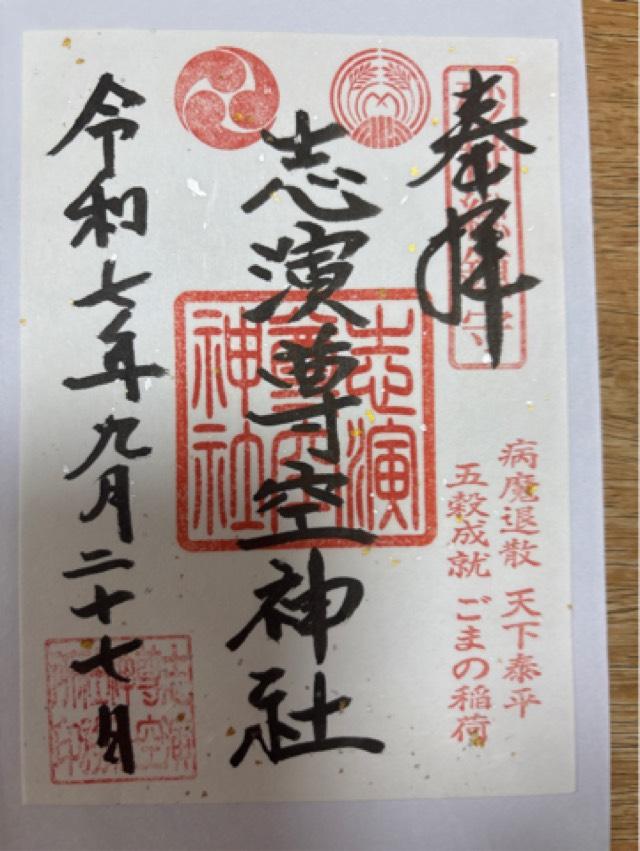 奉拝
病魔退散 天下泰平
五穀成就 ごまの稲荷
志演尊空神社
志演
尊空
神社
令和七年九月二十七日